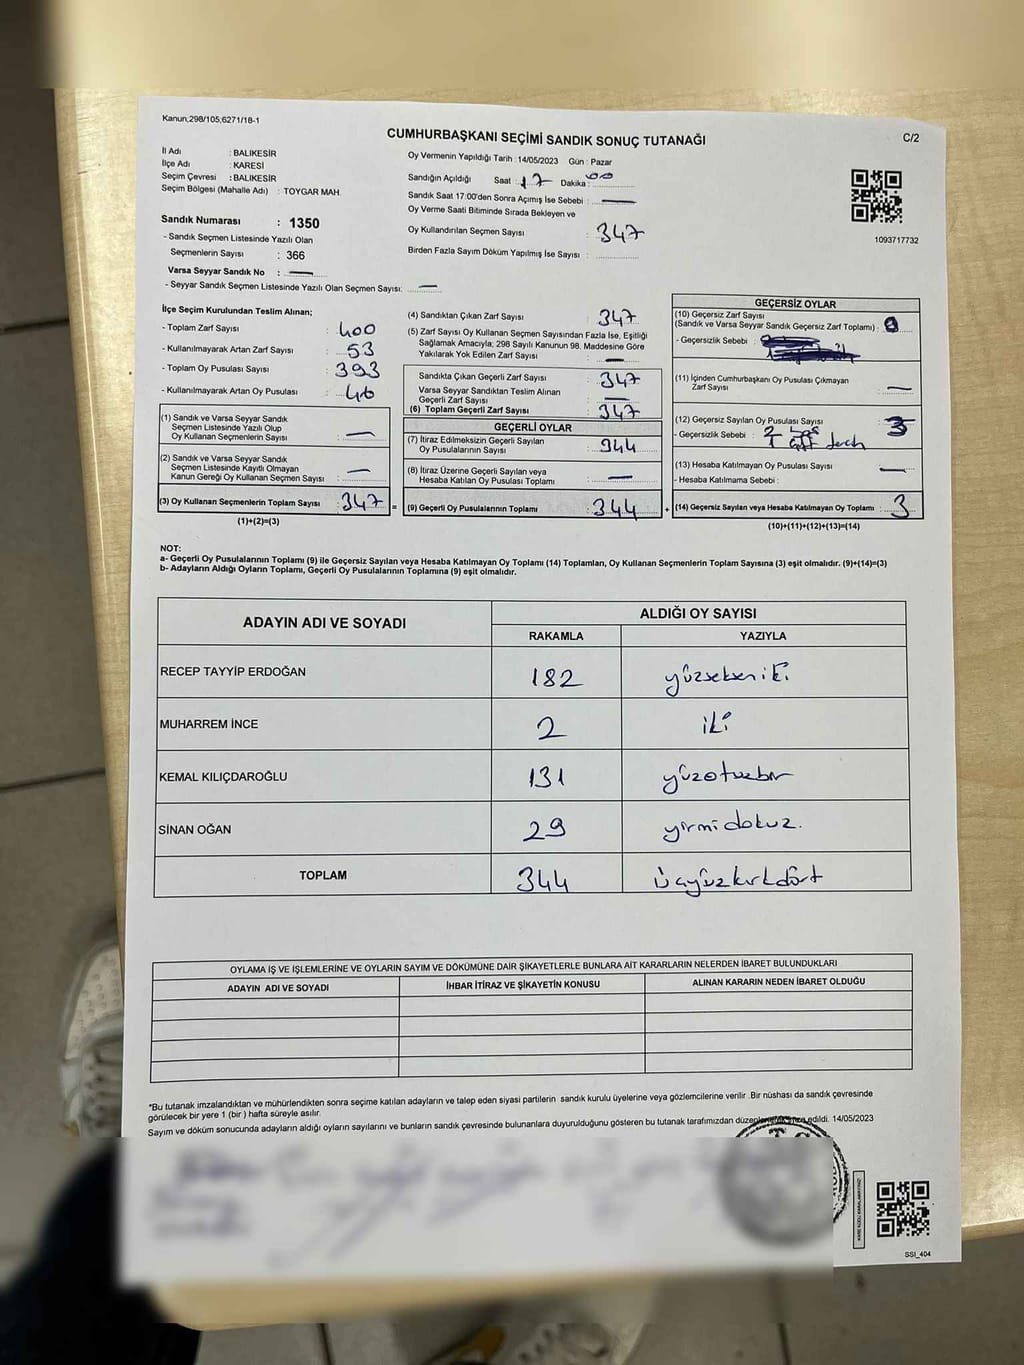 Kanun;298/105;6271/18-1
CUMHURBAŞKANI SEÇİMİ SANDIK SONUÇ TUTANAĞI
C/2
İl Adı : BALIKESİR
İlçe Adı : KARESİ
Seçim Çevresi : BALIKESİR
Seçim Bölgesi (Mahalle Adı) : TOYGAR MAH.
Sandık Numarası : 1350
- Sandık Seçmen Listesinde Yazılı Olan
Seçmenlerin Sayısı : 366
Varsa Seyyar Sandık No : —
- Seyyar Sandık Seçmen Listesinde Yazılı Olan Seçmen Sayısı: —
Oy Vermenin Yapıldığı Tarih : 14/05/2023 Gün : Pazar
Sandığın Açıldığı Saat : 17 Dakika : 00
Sandık Saat 17:00'den Sonra Açımış İse Sebebi : —
Oy Verme Saati Bitiminde Sırada Bekleyen ve
Oy Kullandırılan Seçmen Sayısı : 347
Birden Fazla Sayım Döküm Yapılmış İse Sayısı :
1093717732
İlçe Seçim Kurulundan Teslim Alınan;
- Toplam Zarf Sayısı : 400
- Kullanılmayarak Artan Zarf Sayısı : 53
- Toplam Oy Pusulası Sayısı : 393
- Kullanılmayarak Artan Oy Pusulası : 46
(1) Sandık ve Varsa Seyyar Sandık
Seçmen Listesinde Yazılı Olup
Oy Kullanan Seçmenlerin Sayısı : —
(2) Sandık ve Varsa Seyyar Sandık
Seçmen Listesinde Kayıtlı Olmayan
Kanun Gereği Oy Kullanan Seçmen Sayısı : —
(3) Oy Kullanan Seçmenlerin Toplam Sayısı : 347 =
(1)+(2)=(3)
(4) Sandıktan Çıkan Zarf Sayısı : 347
(5) Zarf Sayısı Oy Kullanan Seçmen Sayısından Fazla İse, Eşitliği
Sağlamak Amacıyla; 298 Sayılı Kanunun 98. Maddesine Göre
Yakılarak Yok Edilen Zarf Sayısı : —
Sandıkta Çıkan Geçerli Zarf Sayısı : 347
Varsa Seyyar Sandıktan Teslim Alınan
Geçerli Zarf Sayısı : —
(6) Toplam Geçerli Zarf Sayısı : 347
GEÇERLİ OYLAR
(7) İtiraz Edilmeksizin Geçerli Sayılan
Oy Pusulalarının Sayısı : 344
(8) İtiraz Üzerine Geçerli Sayılan veya
Hesaba Katılan Oy Pusulası Toplamı : —
(9) Geçerli Oy Pusulalarının Toplamı : 344 +
GEÇERSİZ OYLAR
(10) Geçersiz Zarf Sayısı
(Sandık ve Varsa Seyyar Sandık Geçersiz Zarf Toplamı) :
- Geçersizlik Sebebi :
(11) İçinden Cumhurbaşkanı Oy Pusulası Çıkmayan
Zarf Sayısı : —
(12) Geçersiz Sayılan Oy Pusulası Sayısı : 3
- Geçersizlik Sebebi :
(13) Hesaba Katılmayan Oy Pusulası Sayısı : —
- Hesaba Katılmama Sebebi :
(14) Geçersiz Sayılan veya Hesaba Katılmayan Oy Toplamı : 3
(10)+(11)+(12)+(13)=(14)
NOT:
a- Geçerli Oy Pusulalarının Toplamı (9) ile Geçersiz Sayılan veya Hesaba Katılmayan Oy Toplamı (14) Toplamları, Oy Kullanan Seçmenlerin Toplam Sayısına (3) eşit olmalıdır. (9)+(14)=(3)
b- Adayların Aldığı Oyların Toplamı, Geçerli Oy Pusulalarının Toplamına (9) eşit olmalıdır.
ADAYIN ADI VE SOYADI
ALDIĞI OY SAYISI
RAKAMLA YAZIYLA
RECEP TAYYİP ERDOĞAN 182 yüzseksen iki
MUHARREM İNCE 2 iki
KEMAL KILIÇDAROĞLU 131 yüzotuzbir
SİNAN OĞAN 29 yirmidokuz.
TOPLAM 344 üçyüzkırkdört
OYLAMA İŞ VE İŞLEMLERİNE VE OYLARIN SAYIM VE DÖKÜMÜNE DAİR ŞİKAYETLERLE BUNLARA AİT KARARLARIN NELERDEN İBARET BULUNDUKLARI
ADAYIN ADI VE SOYADI İHBAR İTİRAZ VE ŞİKAYETİN KONUSU ALINAN KARARIN NEDEN İBARET OLDUĞU
*Bu tutanak imzalandıktan ve mühürlendikten sonra seçime katılan adayların ve talep eden siyasi partilerin sandık kurulu üyelerine veya gözlemcilerine verilir .Bir nüshası da sandık çevresinde
görülecek bir yere 1 (bir ) hafta süreyle asılır.
Sayım ve döküm sonucunda adayların aldığı oyların sayılarını ve bunların sandık çevresinde bulunanlara duyurulduğunu gösteren bu tutanak tarafımızdan edildi. 14/05/2023
SSİ_404